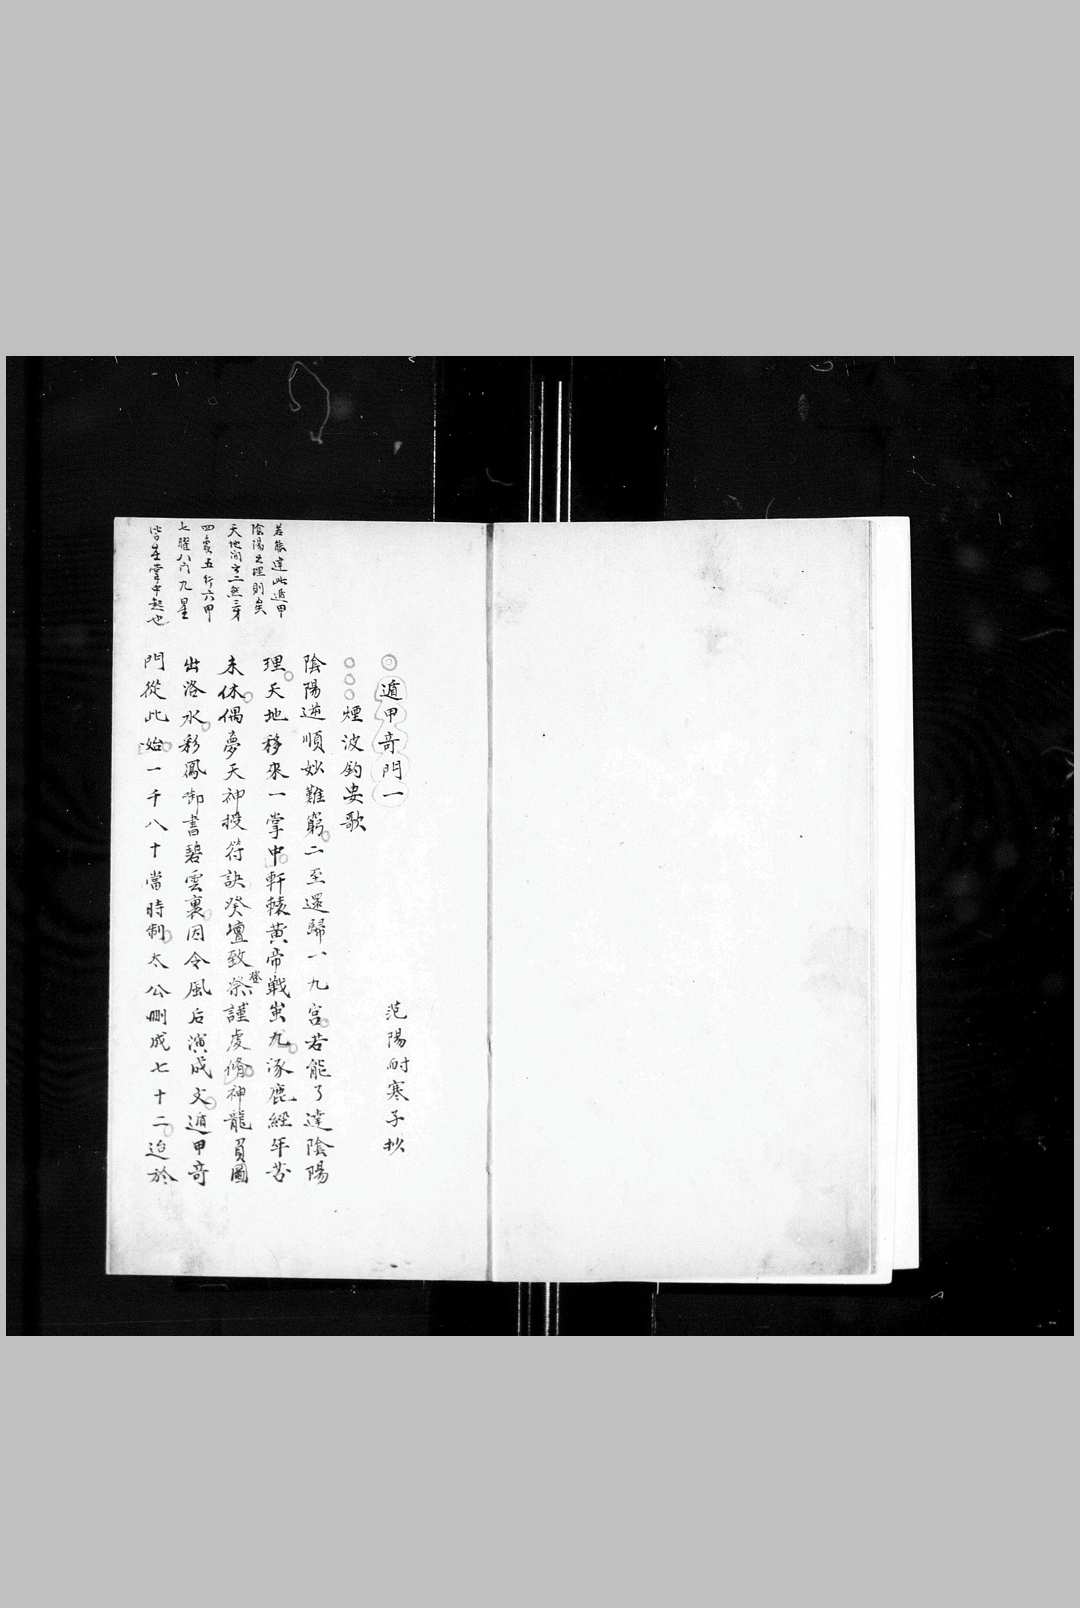 遁甲奇門一
范陽耐寒子抄
煙波釣叟歌
陰陽逆順妙難窮二至還歸一九宮若能了達陰陽
理天地移來一掌中軒轅黃帝戰蚩尤涿鹿經年苦
未休偶夢天神授符訣癸壇致祭謹虔脩神龍負圖
登
出洛水彩鳳御書碧雲裏因令風后演成文遁甲奇
門從此始一千八十當時制太公刪成七十二迨於
若能達此遁甲
陰陽之理則矣
天地間二三才
四象五行六甲
七曜八門九星
皆在掌中起也